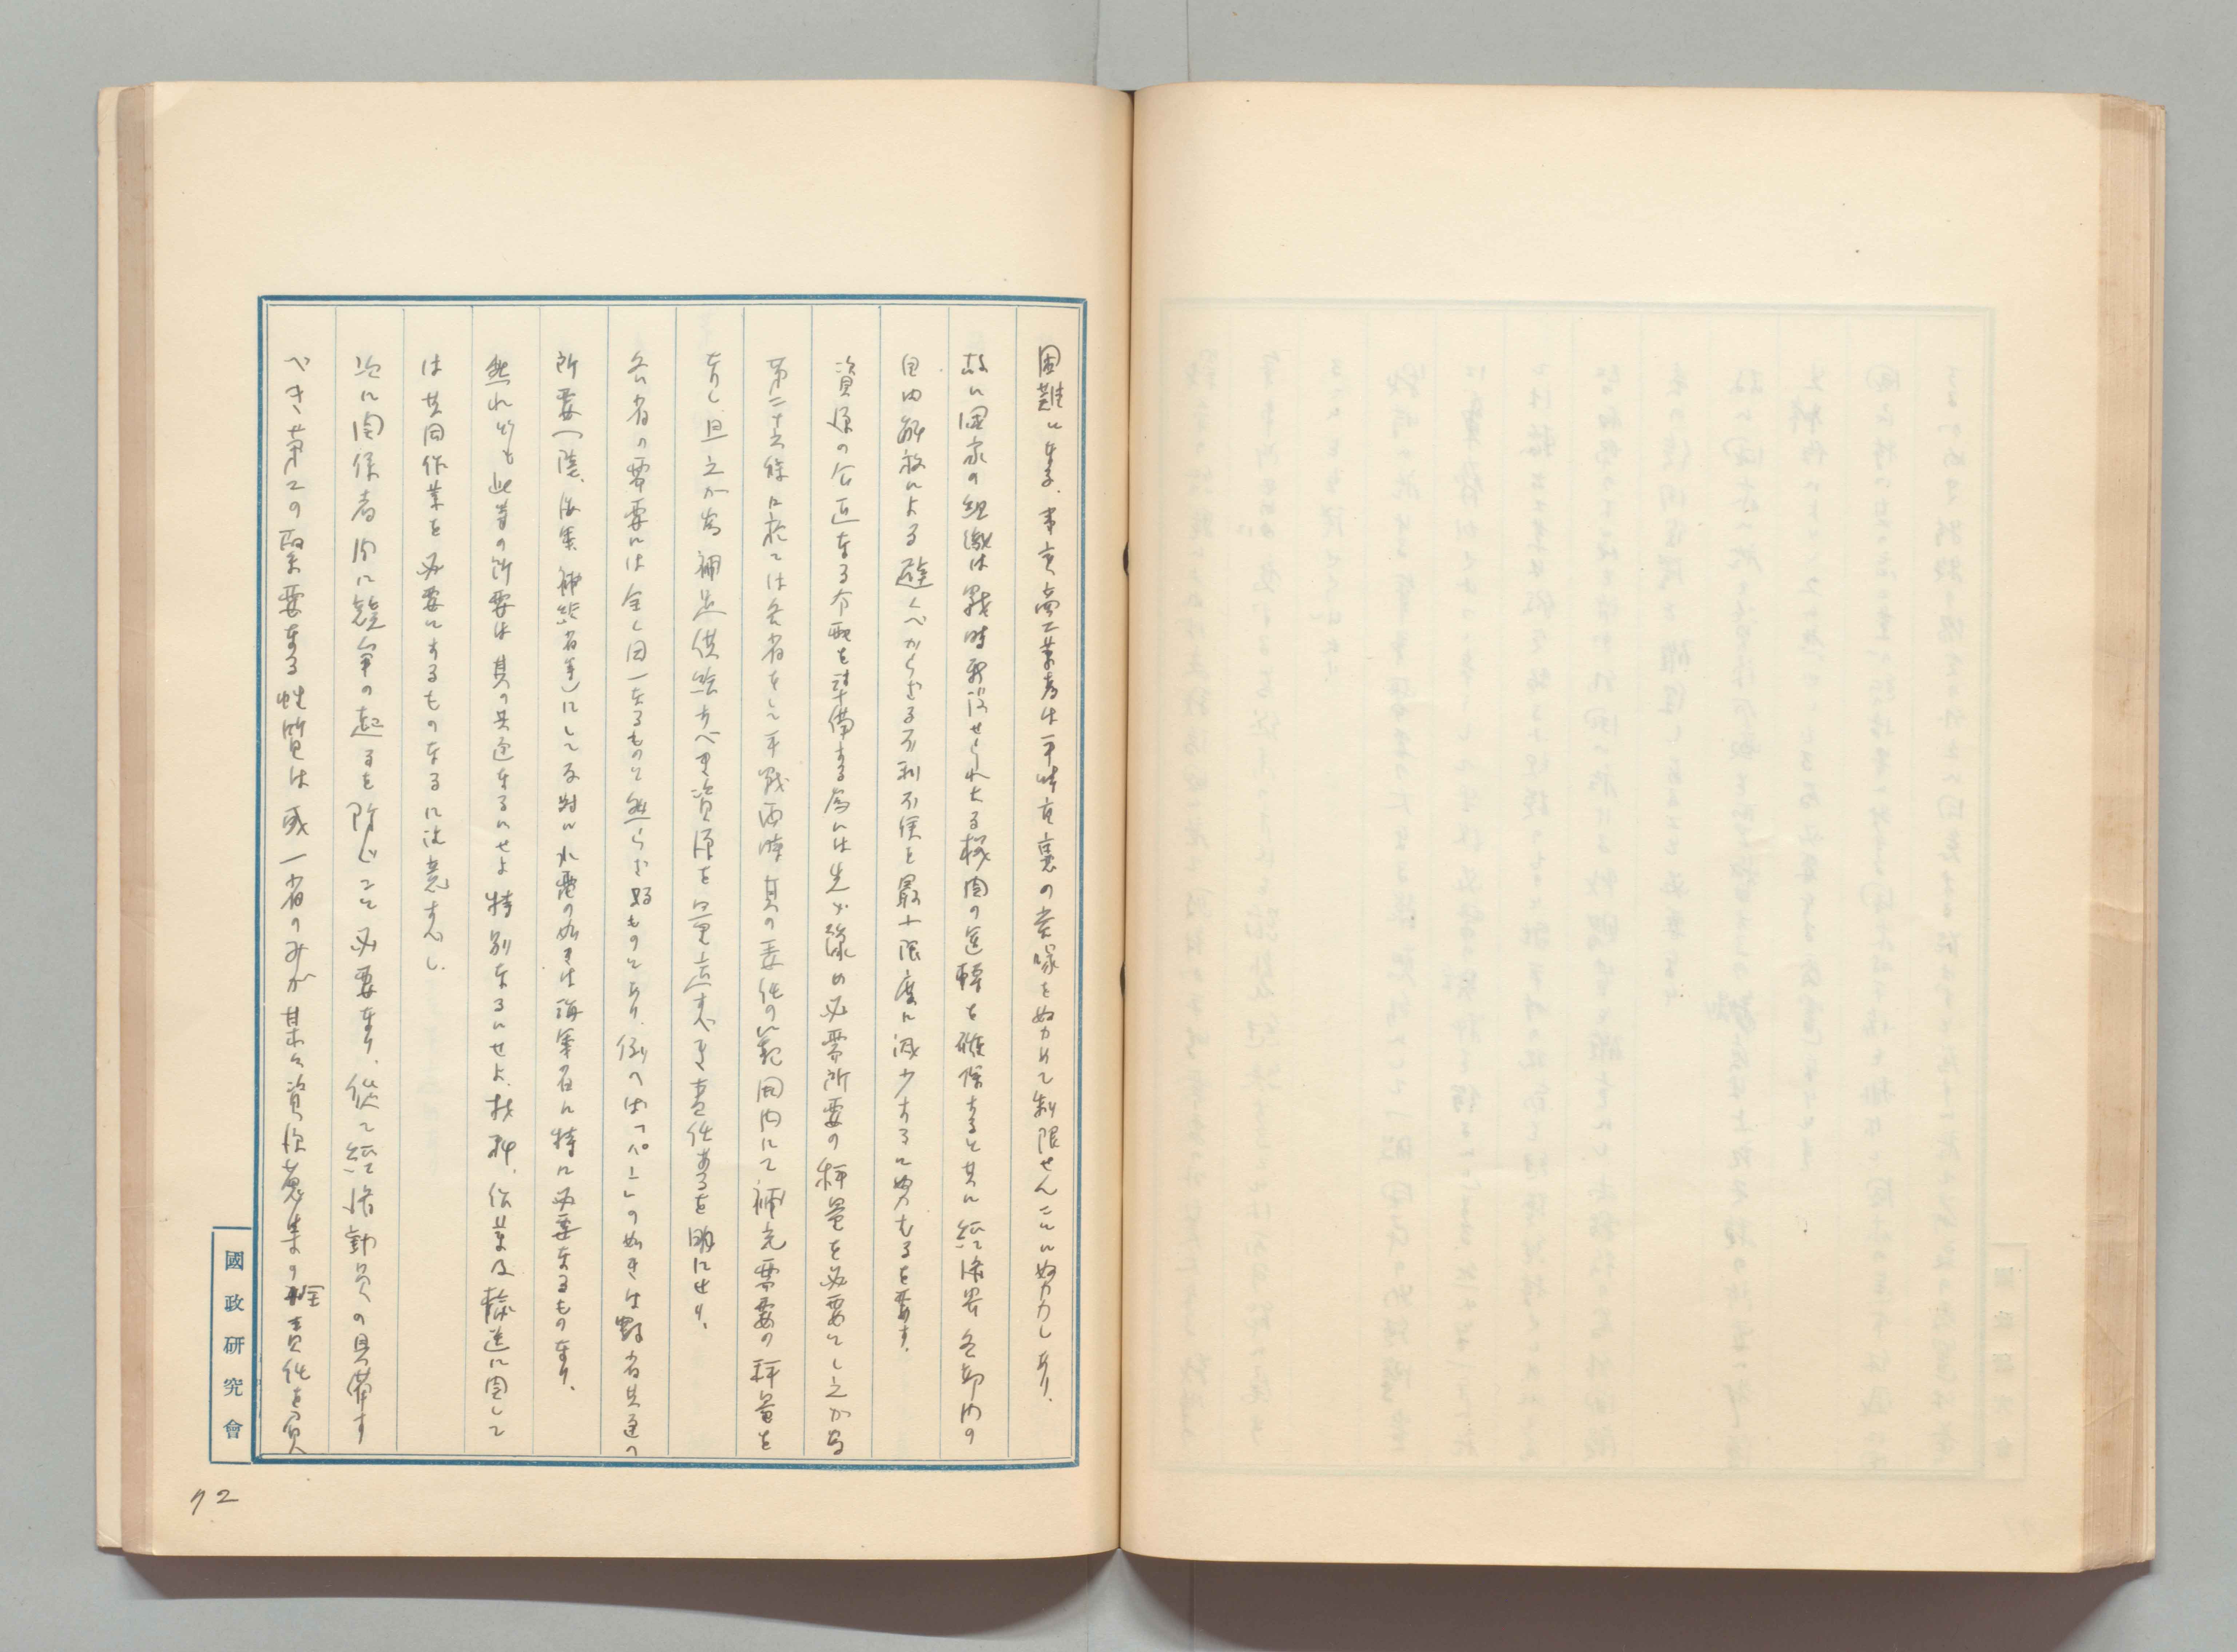 困難に、事実商工業者は平時在裏の貯蔵を努めて制限せんことに努力しあり、
故に国家の組織は戦時要求せられたる機関の運転を確保すると共に経済界各部内の
自由解放による避くべからざる不利不便を最小限度に減少することに努むるを要す、
資源の公正なる分配を準備する為には先づ予め必要所要の秤量を必要とし之が為
第二十六條に於ては各省をして平戦両時其の責任の範囲内にて補充需要の秤量を
なし且之が為補足供給すべき資源を すべき責任あるを明にせり、
各省の需要には全く同一なるものと然らざるものとあり、例へば「パン」の如きは数省共通の
所要(陸、海軍、補給省等)にして反対に水雷の如きは海軍省に特に必要なるものなり、
然れども此等の所要は其の共通なるにせよ特別なるにせよ、抽出、作業及輸送に関して
は共同作業を必要にするものなるに注意すべし、
次に関係者間に競争の起るを防ぐこと必要なり、従て経済動員の具備す
べき第二の緊要なる性質は或一省のみが某々資源蒐集の全責任を負
國政研究會
72